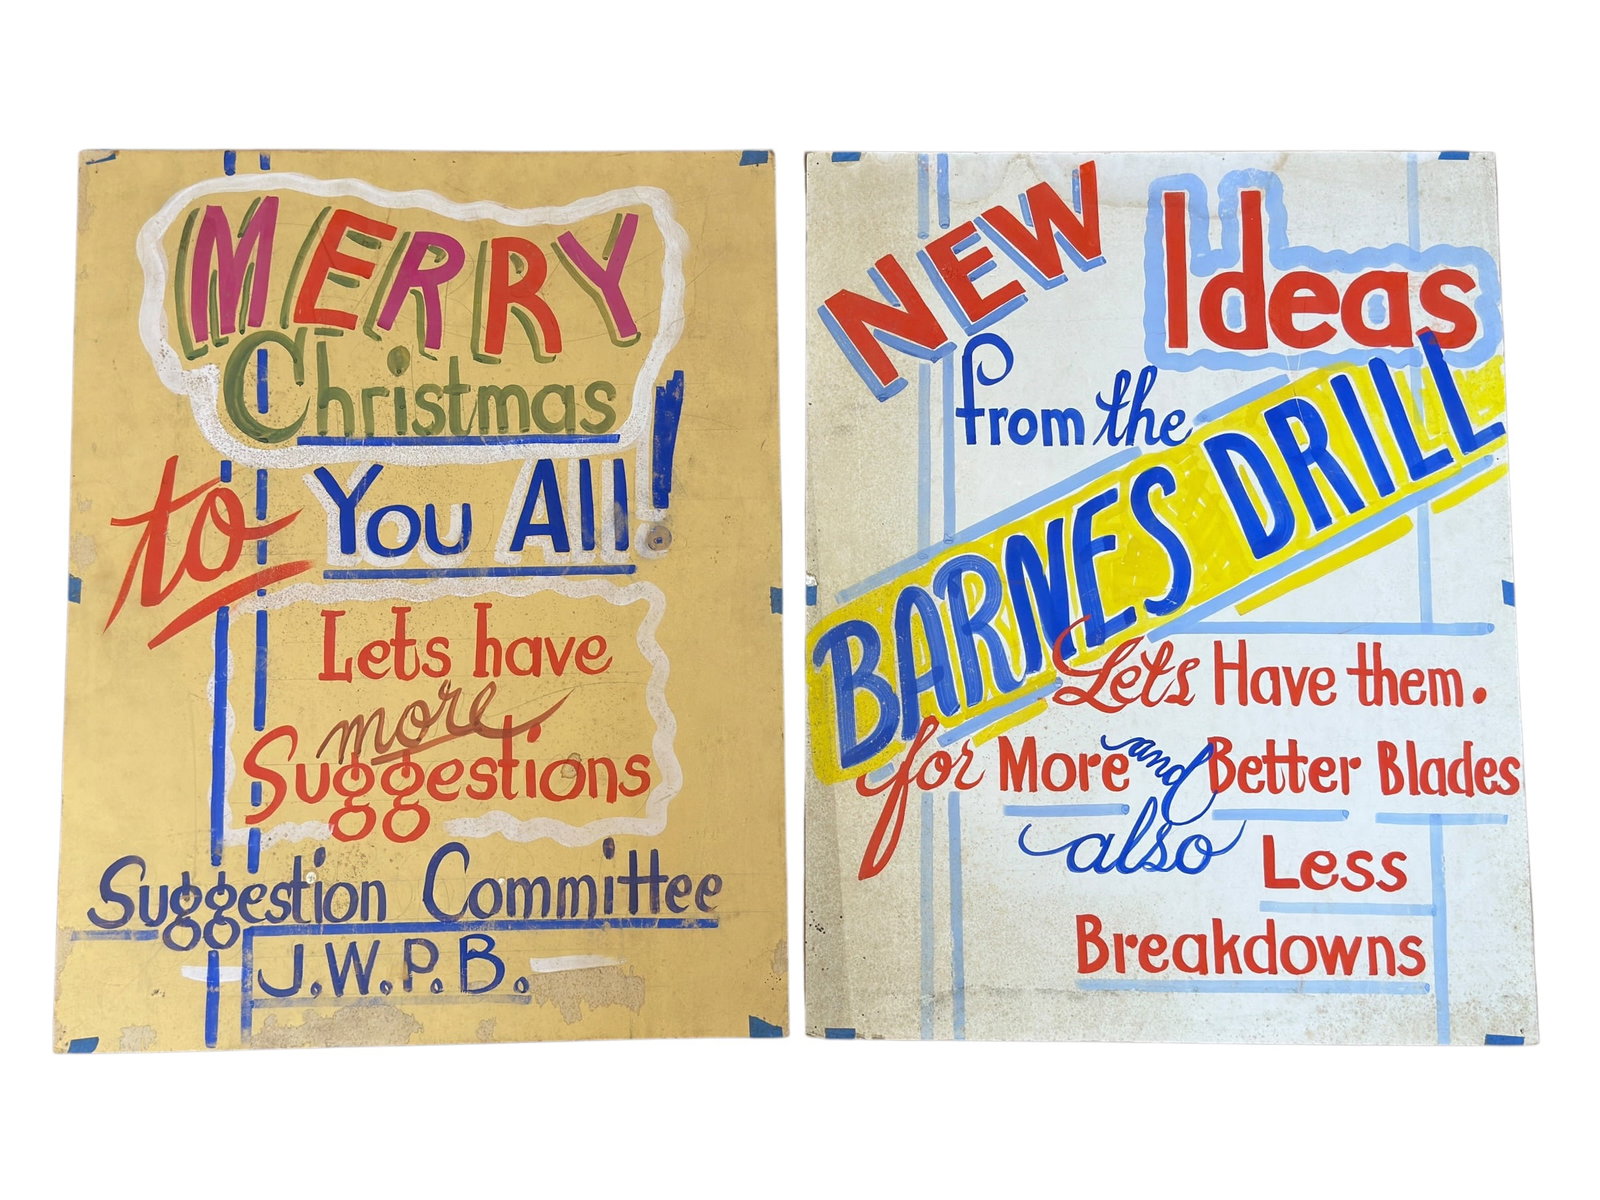 MERRY
Christmas
to You All!
Lets have
more
Suggestions
Suggestion Committee
J.W.P.B.
NEW Ideas
from the
BARNES DRILL
Lets Have them.
for More and Better Blades
also Less
Breakdowns